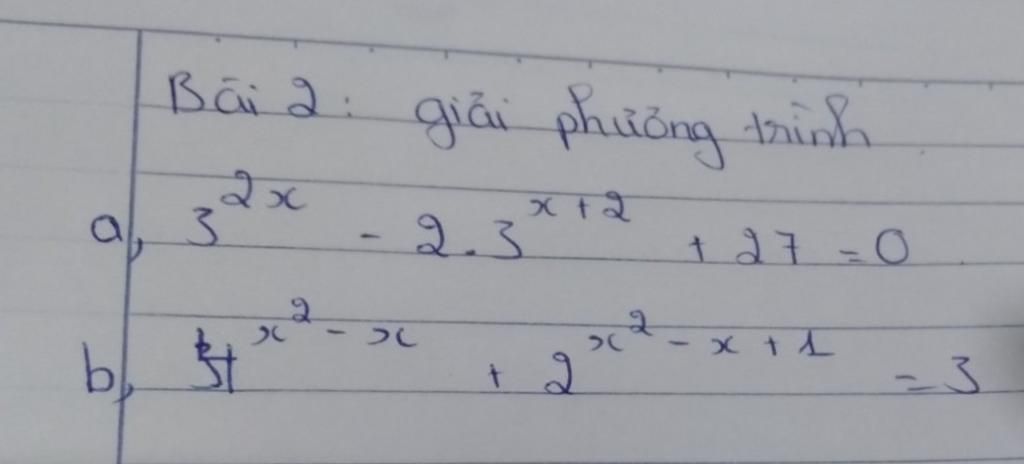 Bài 2: giải phương trình
a, 3^{2x} - 2.3^{x+2} + 27 = 0
b, 4^{x^2-x} + 2^{x^2-x+1} = 3